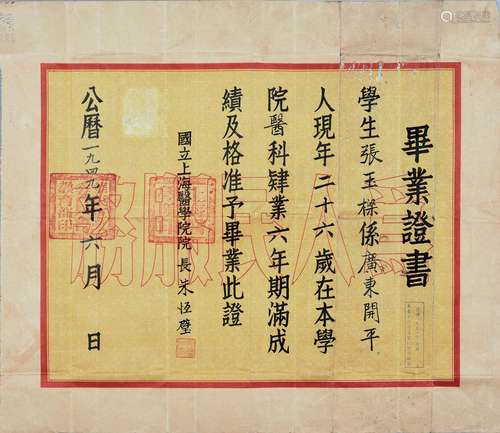 畢業證書
學生張玉櫟係廣東開平
人現年二十六歲在本學
院醫科肄業六年期滿成
績及格准予畢業此證
國立上海醫學院院長朱恒璧
公曆一九四九年六月 日
為人民服務